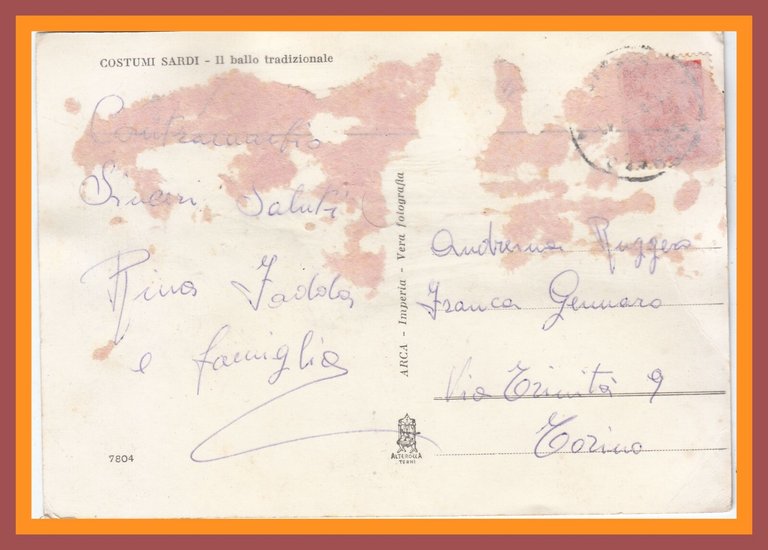 COSTUMI SARDI - Il ballo tradizionale
Contraccambio
Sinceri saluti
Rina Fadda
e famiglia
7804
ARCA - Imperia - Vera fotografia
ALTEROCCA
TERNI
Ruggero
Franca Gennaro
Via Trinità 9
Torino